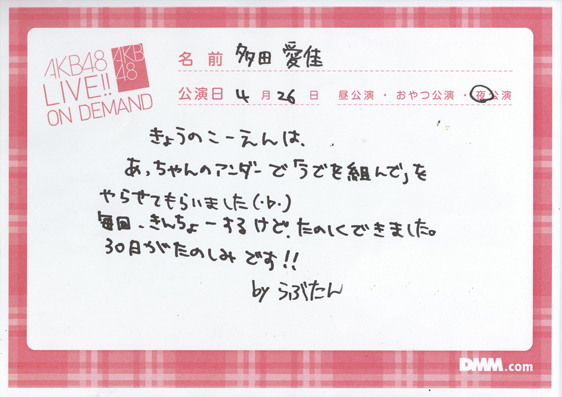 AKB48
LIVE!!
ON DEMAND
AKB
48
名前 多田愛佳
公演日 4月26日 昼公演・おやつ公演・夜公演
きょうのこーえんは、
あっちゃんのアンダーで「うでを組んで」を
やらせてもらいました(・b・)
毎回、きんちょーするけど、たのしくできました。
30日がたのしみです!!
by らぶたん
DMM.com